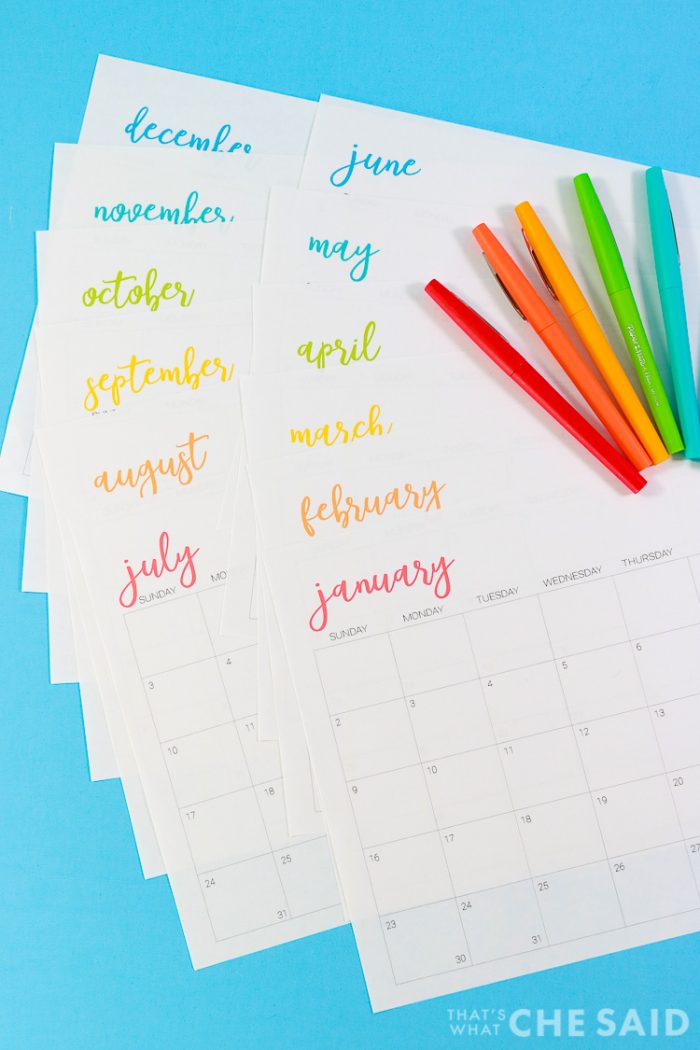 december
november
october
september
august
july
SUNDAY MO
3 4
10 11
17 18
24 25
31
june
may
april
march
february
january
SUNDAY MONDAY TUESDAY WEDNESDAY THURSDAY
2 3 4 5 6
9 10 11 12 13
16 17 18 19 20
23 24 25 26 27
30 31
THAT'S
WHAT CHE SAID